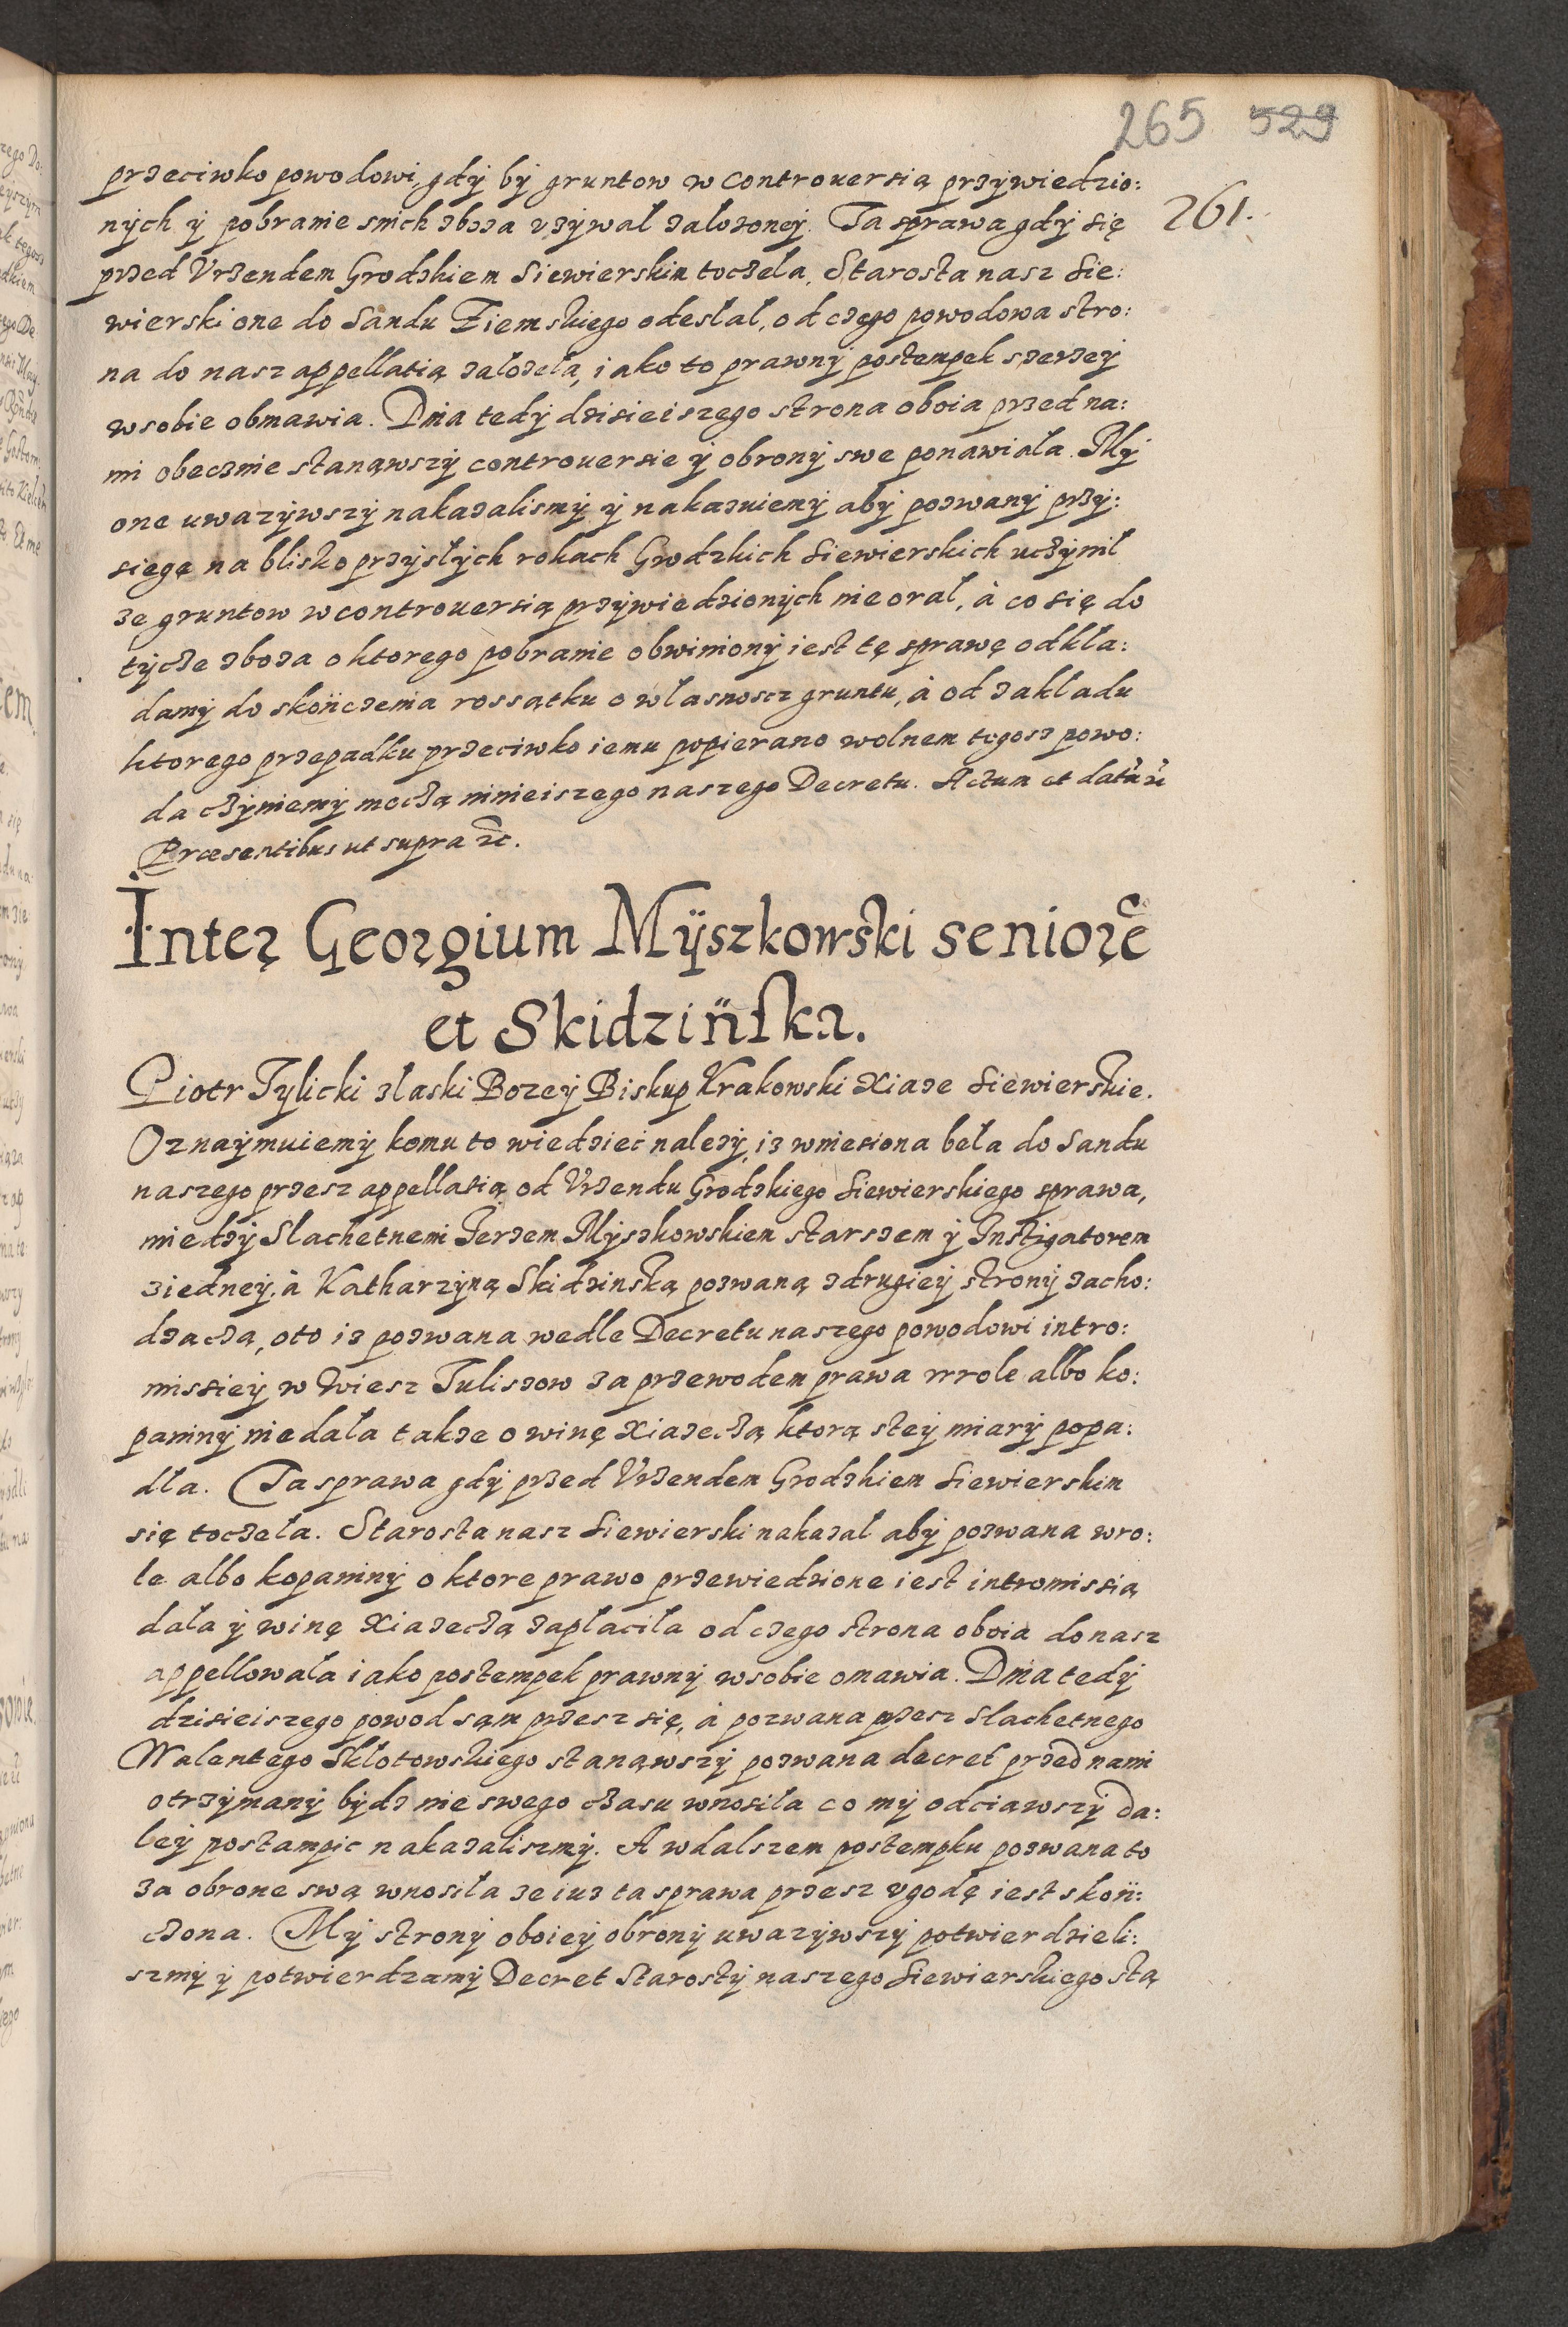 265 529
261.
przeciwko powodowi, gdÿ bÿ gruntow w controuersią przÿwiedzio:
nÿch ÿ pobranie snich zboza vzÿwał zalozoneÿ. Ta sprawa gdÿ się
przed Vrzendem Grodzkiem Siewierskim toczeła, Starosta nasz Sie:
wierski one do Sandu Ziemskiego odesłał, od czego powodowa stro:
na do nasz appellatią zalozeła, iako to prawnÿ postempek szerzeÿ
wsobie obmawia. Dnia tedÿ dzisieiszego strona oboia przed na:
mi obecznie stanąwszÿ controuersie ÿ obronÿ swe ponawiała. Mÿ
one uwazÿwszÿ nakazalismÿ ÿ nakazuiemÿ abÿ pozwanÿ przÿ:
siegę na blisko przÿsłÿch rokach Grodzkich Siewierskich uczÿnił
ze gruntow w controuersią przÿwiedzionÿch nie orał, à co się do
tÿcze zboza o ktorego pobranie obwinionÿ iest tę sprawę odkła:
damÿ do skończenia rossątku o własnoscz gruntu, à od zakładu
ktorego przepadku przeciwko iemu popierano wolnem tegosz powo:
da czÿniemÿ moczą ninieiszego naszego Decretu. Actum et datū ū
Præsentibus ut supra ꝛc.
Inter Georgium Mÿszkowski seniorē
et Skidzińska.
Piotr Tÿlicki złaski Bozeÿ Biskup Krakowski Xiaze Siewierskie.
Oznaÿmuiemÿ komu to wiedzieć nalezÿ, iz wniesiona beła do Sandu
naszego przesz appellatią od Vrzendu Grodzkiego Siewierskiego sprawa,
miedzÿ Slachetnemi Jerzem Mÿszkowskiem starszem ÿ Instigatorem
ziedneÿ, à Katharzÿną Skidzinską pozwaną zdrugieÿ stronÿ zacho:
dzacza, oto iz pozwana wedle Decretu naszego powodowi intro:
missieÿ w Wiesz Tuliszow za przewodem prawa wrole albo ko:
paninÿ nie dała takze o winę Xiazeczą ktorą steÿ miarÿ popa:
dła. Ta sprawa gdÿ przed Vrzendem Grodzkiem Siewierskim
się toczeła. Starosta nasz Siewierski nakazał abÿ pozwana wro:
le albo kopaninÿ o ktore prawo przewiedzione iest intromissią
dała ÿ winę Xiazeczą zapłaciła od czego strona oboia do nasz
appellowała iako postempek prawnÿ wsobie omawia. Dnia tedÿ
dzisieiszego powod sąm przesz się, à pozwana przesz Slachetnego
Walentego Skłotowskiego stanąwszÿ pozwana decret przed nami
otrzÿmanÿ bÿdz nie swego czasu wnosiła co mÿ odciawszÿ da:
leÿ postampic nakazaliszmÿ. A wdalszem postempku pozwana to
za obrone swą wnosiła ze iuz ta sprawa przesz vgodę iest skoń:
czona. Mÿ stronÿ oboieÿ obronÿ uwazÿwszÿ potwierdzieli:
szmÿ ÿ potwierdzamÿ Decret Starostÿ naszego Siewierskiego stą